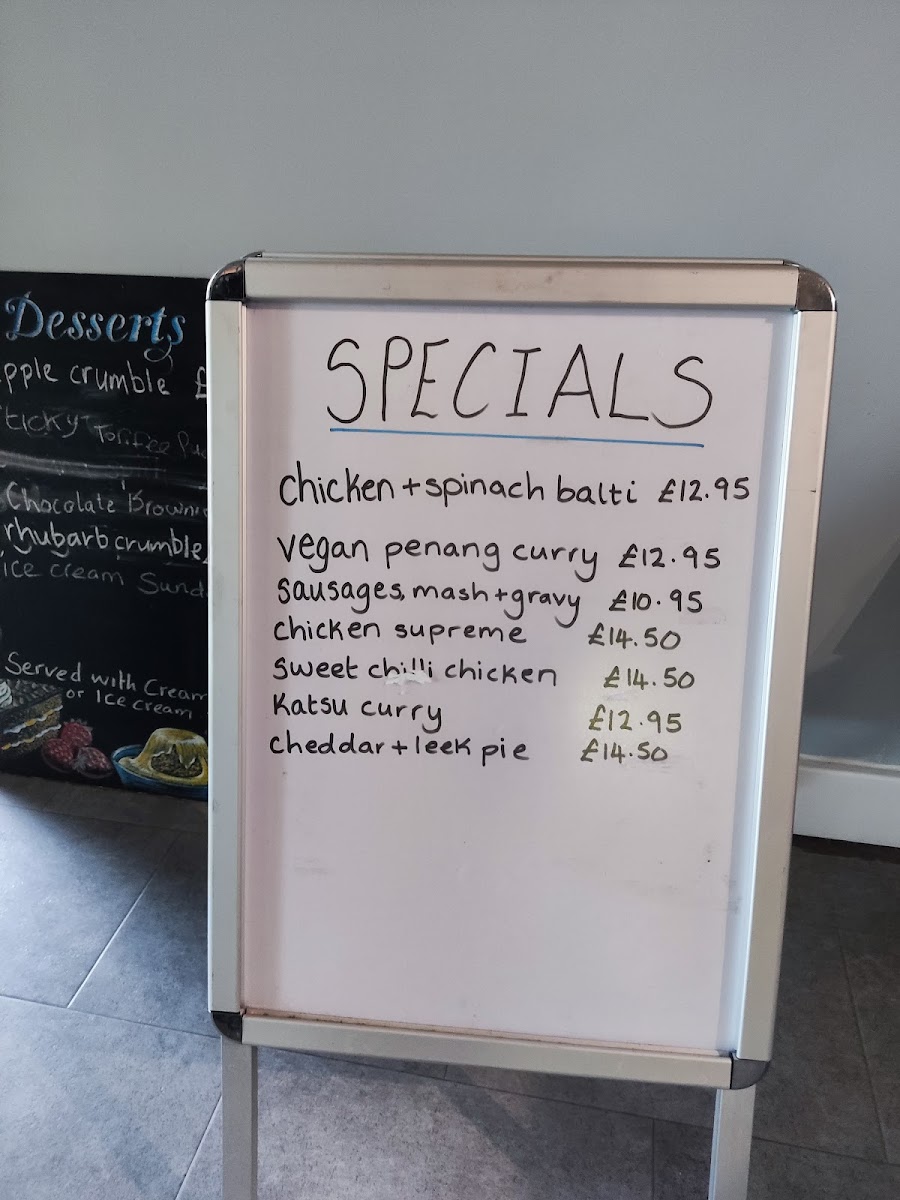 SPECIALS
chicken + spinach balti £12.95
vegan penang curry £12.95
sausages, mash + gravy £10.95
chicken supreme £14.50
sweet chilli chicken £14.50
Katsu curry £12.95
cheddar + leek pie £14.50
Desserts
pple crumble £
ticky Toffee Pud
Chocolate Browni
rhubarb crumble
ice cream Sund
Served with Cream
or Ice cream